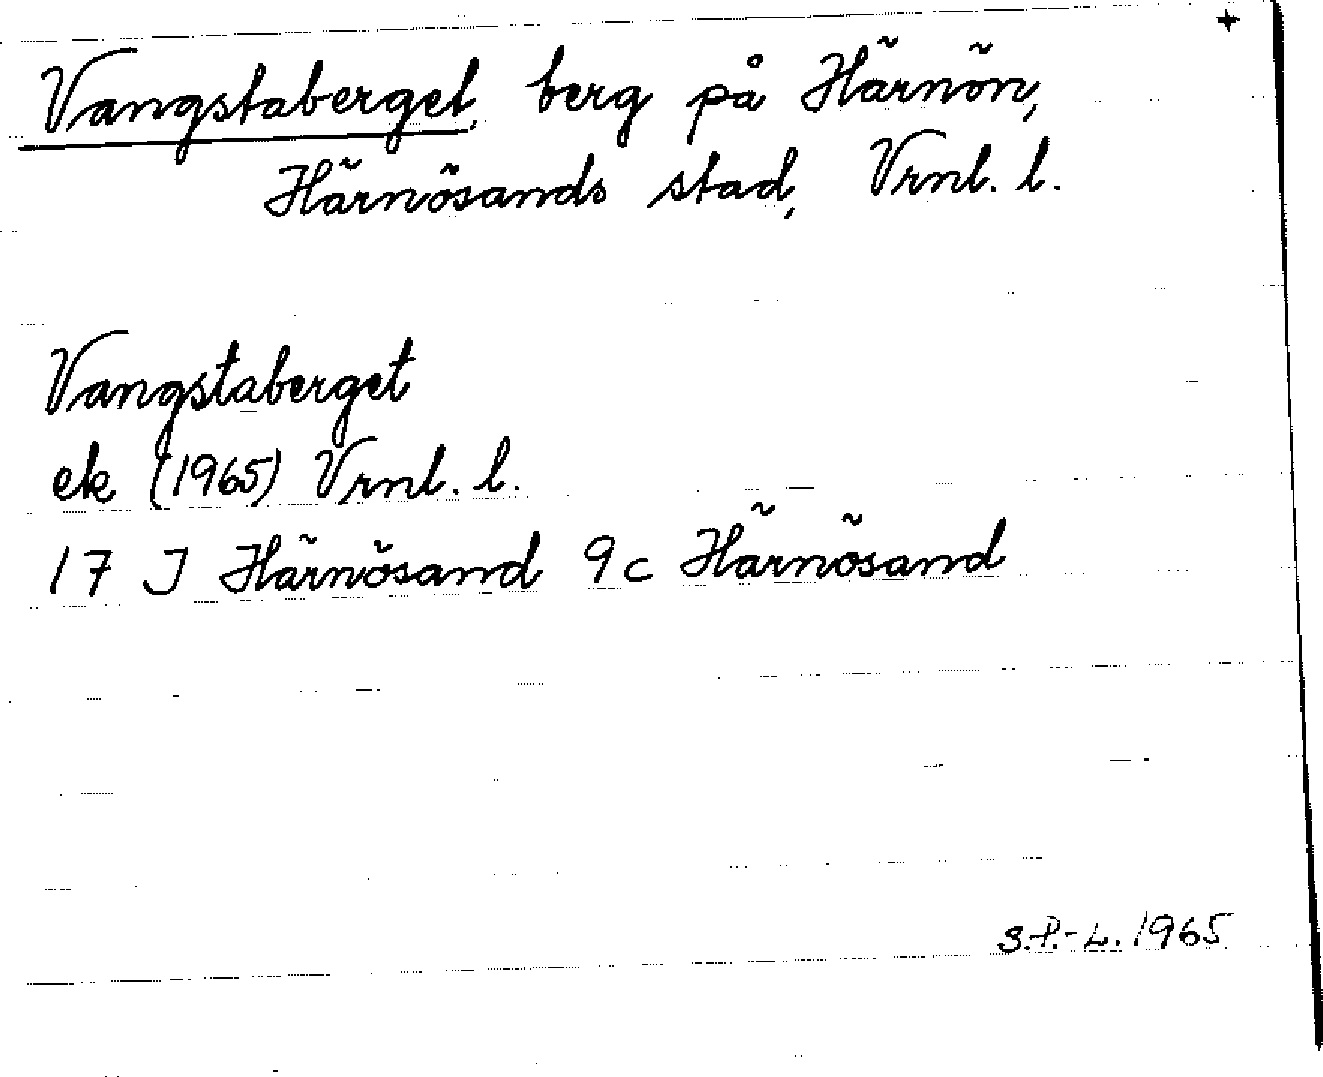 +
Vangstaberget, berg på Härnön,
Härnösands stad, Vrnl. l.
Vangstaberget
ek (1965) Vrnl. l.
17 J Härnösand 9c Härnösand
S.P.-L. 1965